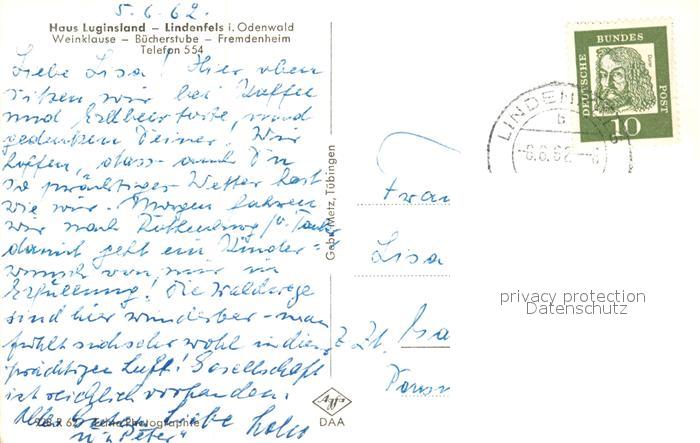 5.6.62.
Haus Luginsland – Lindenfels i. Odenwald
Weinklause – Bücherstube – Fremdenheim
Telefon 554
Liebe Lisa! Hier oben
sitzen wir bei Kaffee
und Erdbeertorte, und
gedenken Deiner. Wir
hoffen, dass auch Du
so prächtiges Wetter hast
wie wir. Morgen fahren
wir nach Rothenburg /o. Tauber
damit geht ein Kinder=
wunsch von mir in
Erfüllung! Die Waldwege
sind hier wunderbar – man
fühlt sich sehr wohl in dieser
prächtigen Luft! Gesellschaft
ist reichlich vorhanden.
Alles Liebe
u. "Peter"
Gebr. Metz, Tübingen
Agfa
DAA
DEUTSCHE BUNDES POST
Dürer
10
LINDENFELS
b
-6.6.62.-
Frau
Lisa
z. Zt.
privacy protection
Datenschutz